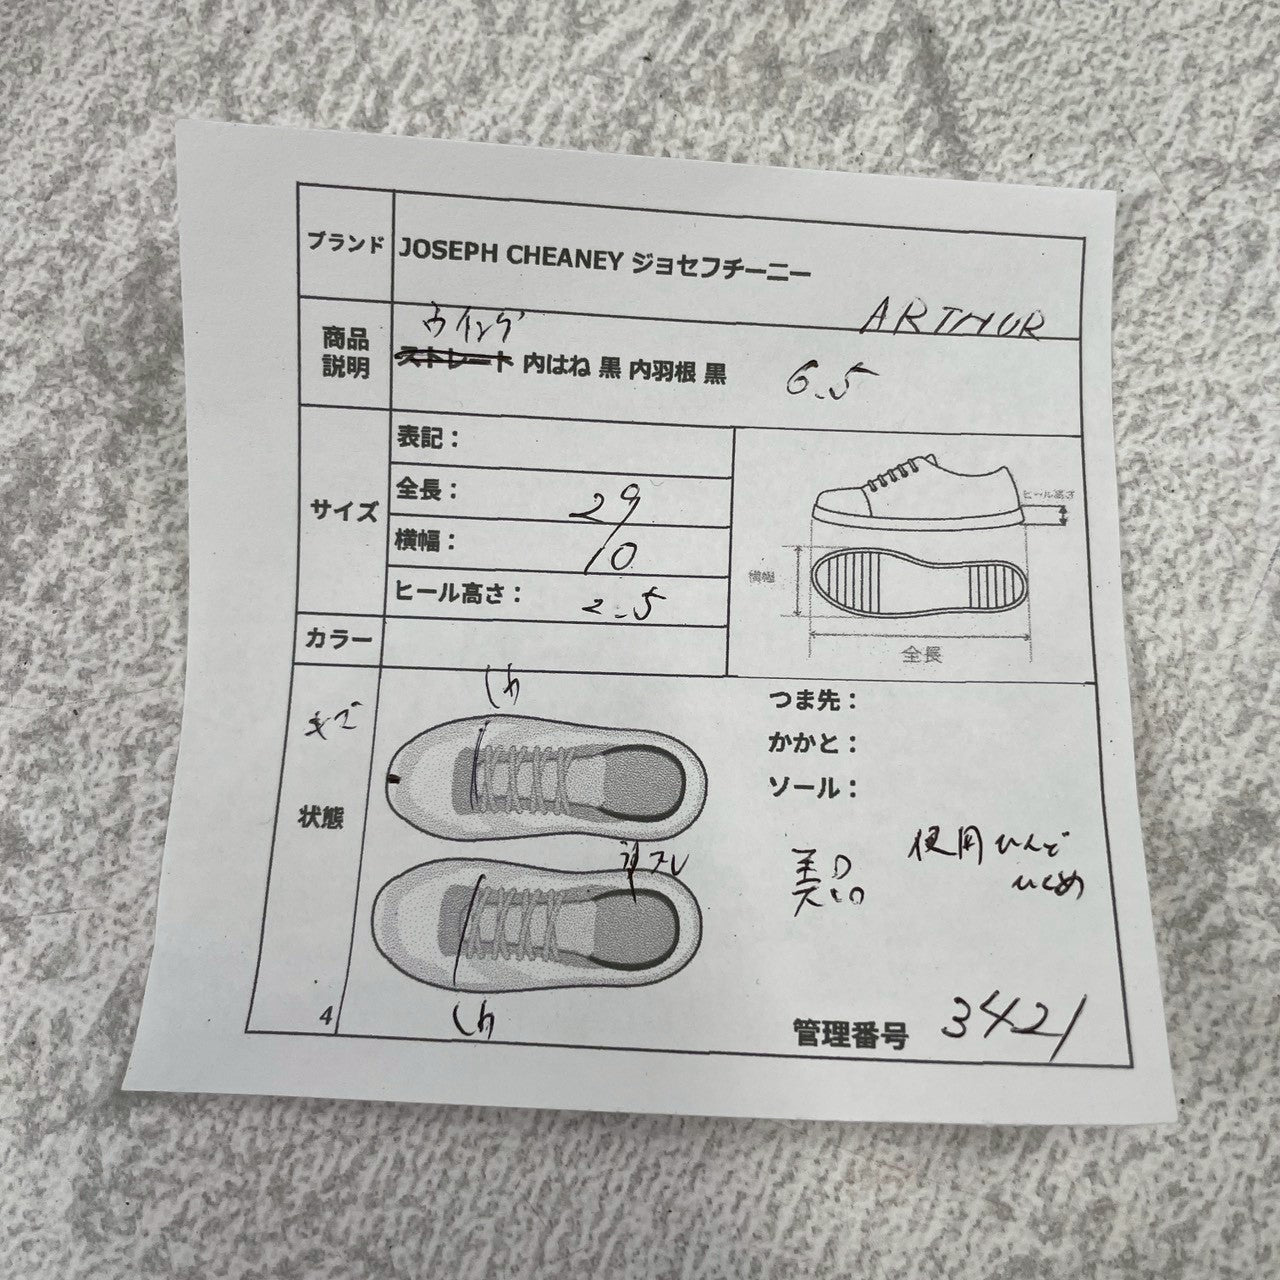 ブランド JOSEPH CHEANEY ジョセフチーニー
ARTHUR
商品説明 ウイング
ストレート 内はね 黒 内羽根 黒 6.5
サイズ
表記：
全長： 29
横幅： 10
ヒール高さ： 2.5
ヒール高さ
横幅
全長
カラー
キズ
状態
4
しわ
スレ
しわ
つま先：
かかと：
ソール：
美品
使用ひんど
管理番号 3421